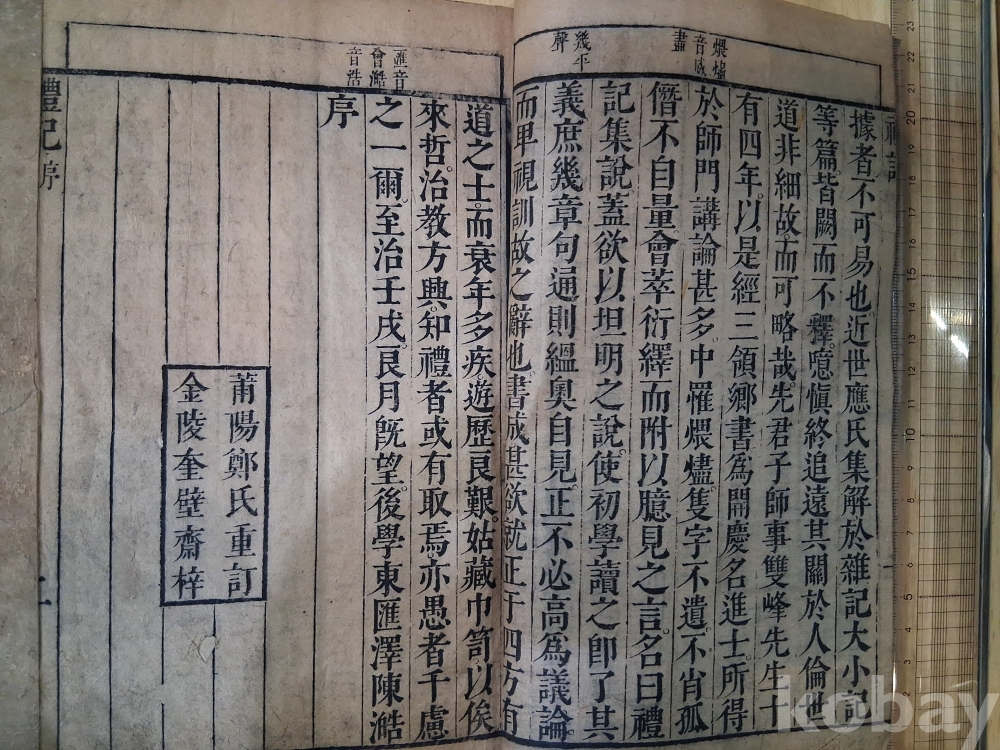 煨燼
音威
盡
幾平
聲
據者不可易也近世應氏集解於雜記大小記
等篇皆闕而不釋噫慎終追遠其關於人倫世
道非細故而可略哉先君子師事雙峰先生十
有四年以是經三領鄉書爲開慶名進士所得
於師門講論甚多中罹煨燼隻字不遺不肖孤
僭不自量會萃衍繹而附以臆見之言名曰禮
記集說蓋欲以坦明之說使初學讀之即了其
義庶幾章句通則縕奧自見正不必高爲議論
而卑視訓故之辭也書成甚欲就正于四方有
匯音
會澔
音浩
道之士而衰年多疾遊歷良艱姑藏巾笥以俟
來哲治教方興知禮者或有取焉亦愚者千慮
之一爾至治壬戌良月旣望後學東匯澤陳澔
序
莆陽鄭氏重訂
金陵奎壁齋梓
禮記 序
23
22
21
20
19
18
17
16
15
14
13
12
11
10
9
8
7
6
5
4
3
2
kobay